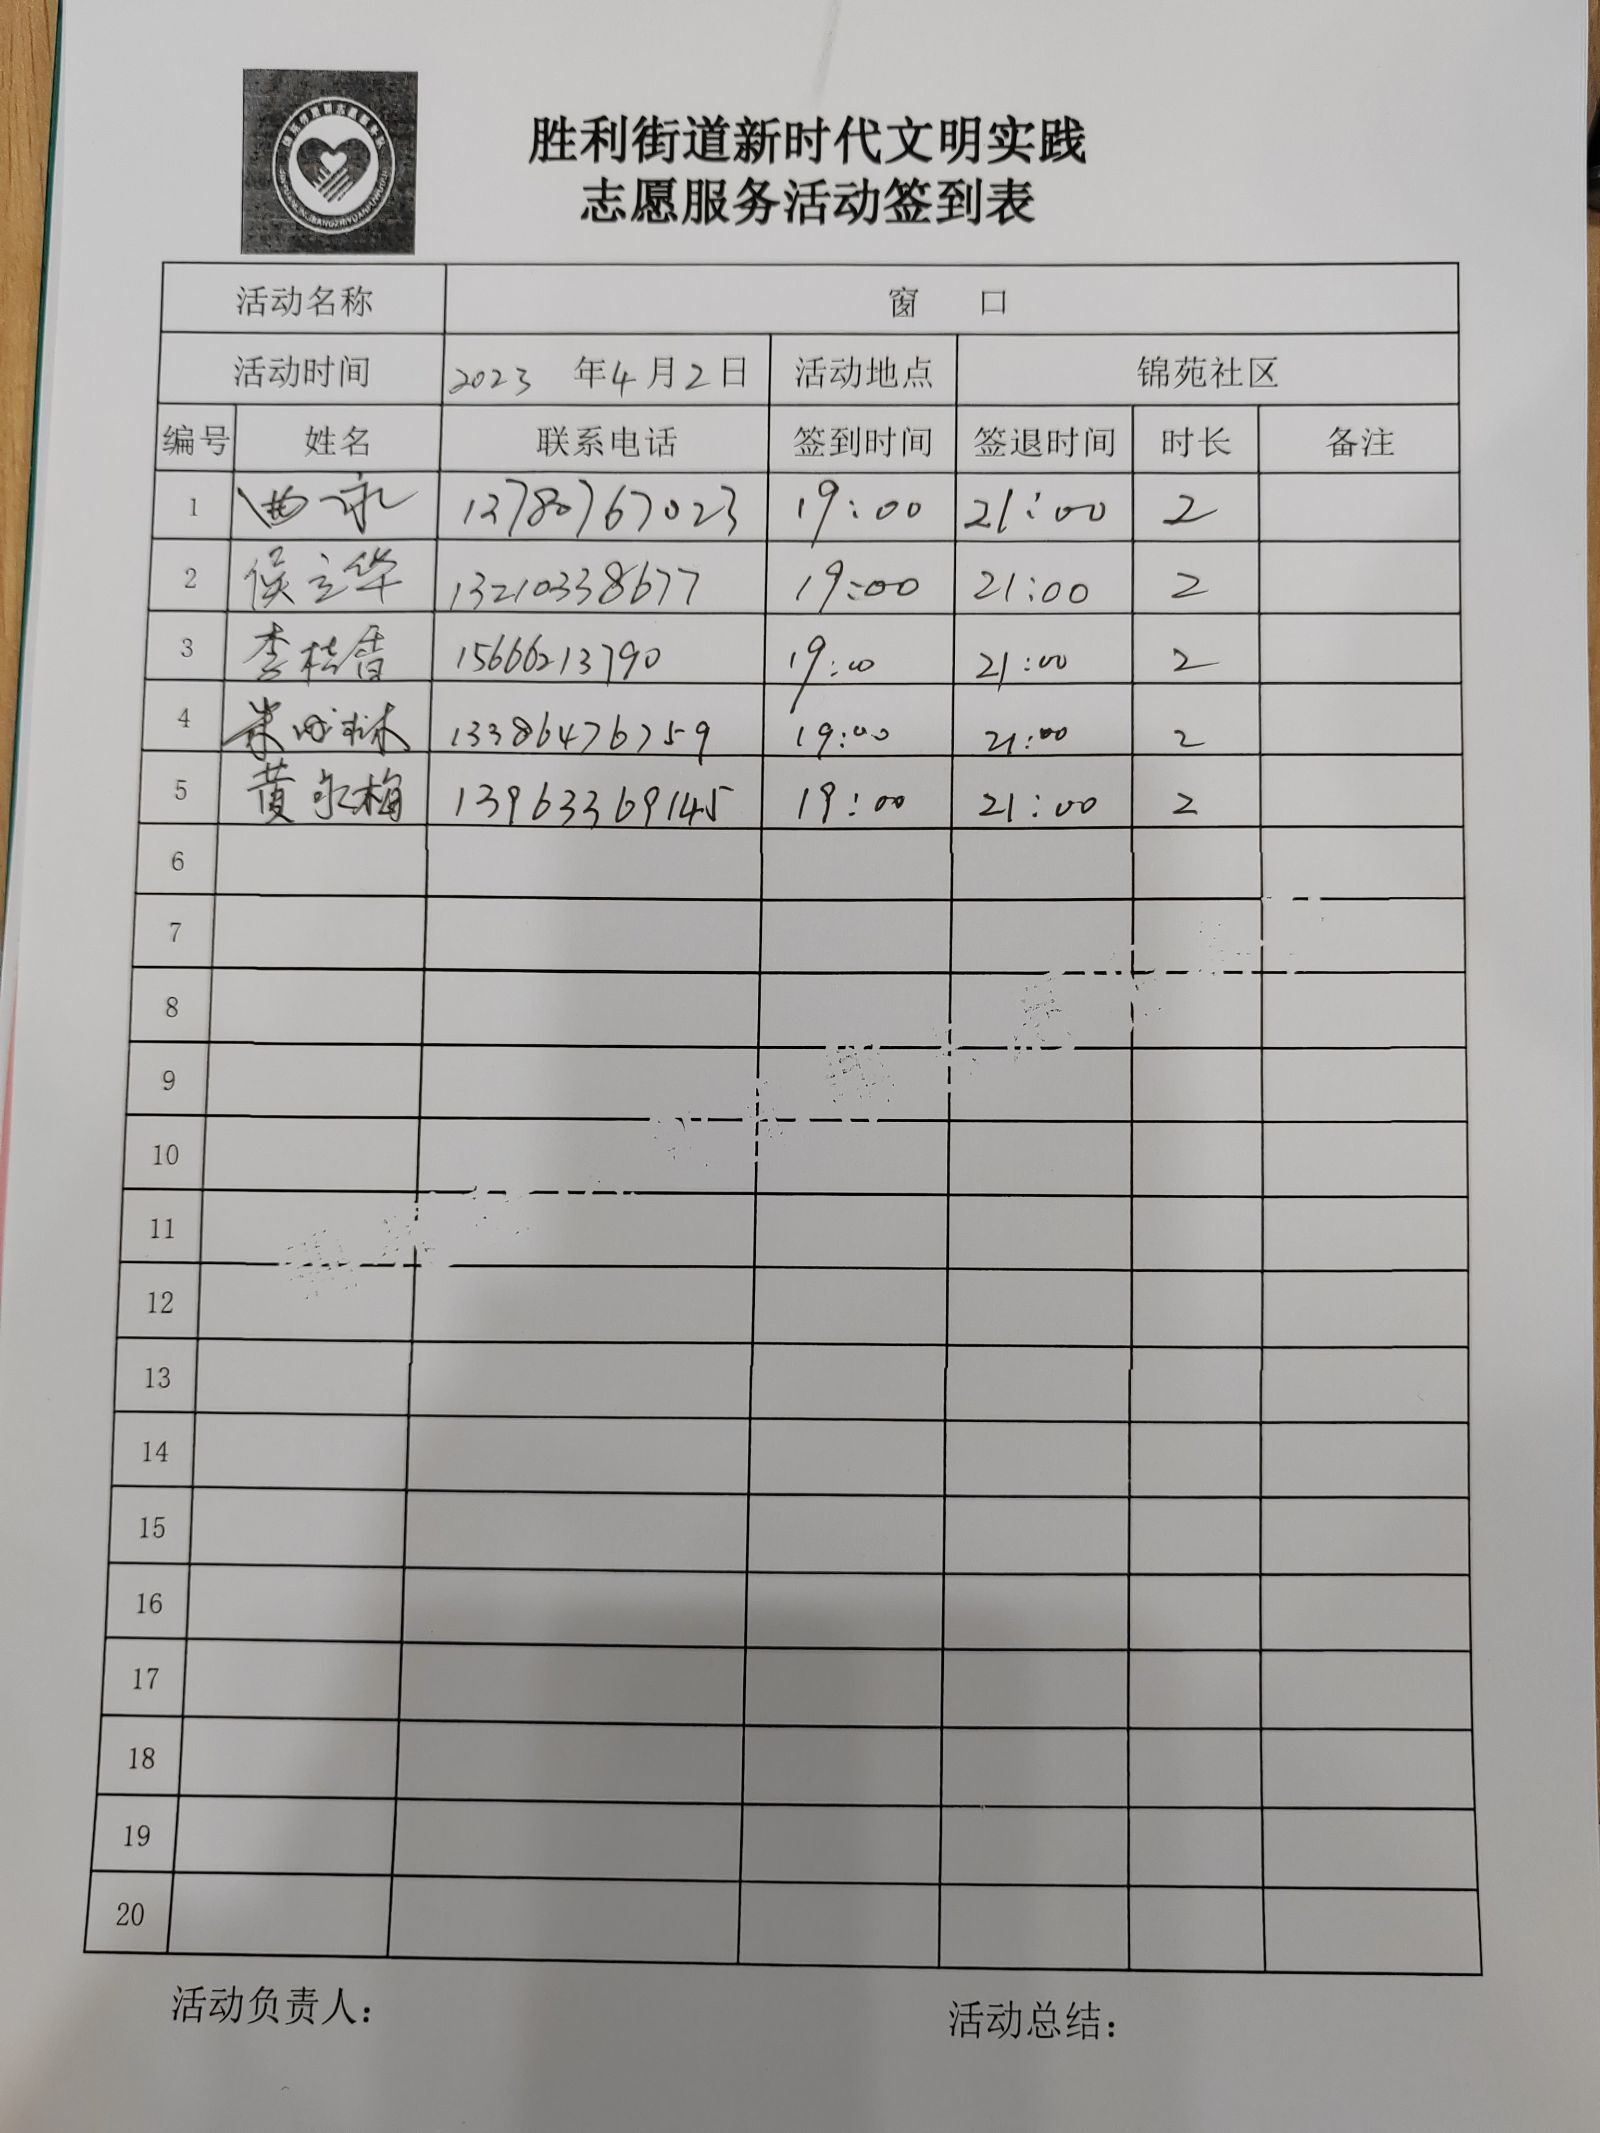 胜利街道新时代文明实践
志愿服务活动签到表
活动名称 窗 口
活动时间 2023 年4月2日 活动地点 锦苑社区
编号 姓名 联系电话 签到时间 签退时间 时长 备注
1 曲永 13780767023 19:00 21:00 2
2 侯立华 13210338677 19:00 21:00 2
3 李桂香 15666213790 19:00 21:00 2
4 13386476759 19:00 21:00 2
5 黄永梅 13963369145 19:00 21:00 2
6
7
8
9
10
11
12
13
14
15
16
17
18
19
20
活动负责人： 活动总结：